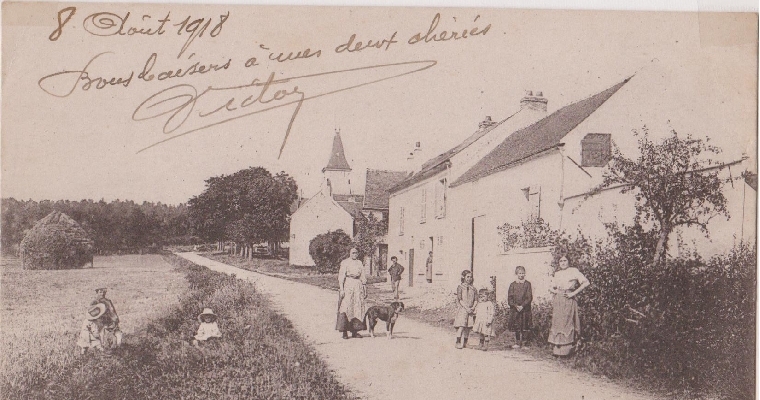 8 Août 1918
Bons baisers à mes deux chéries
Victor